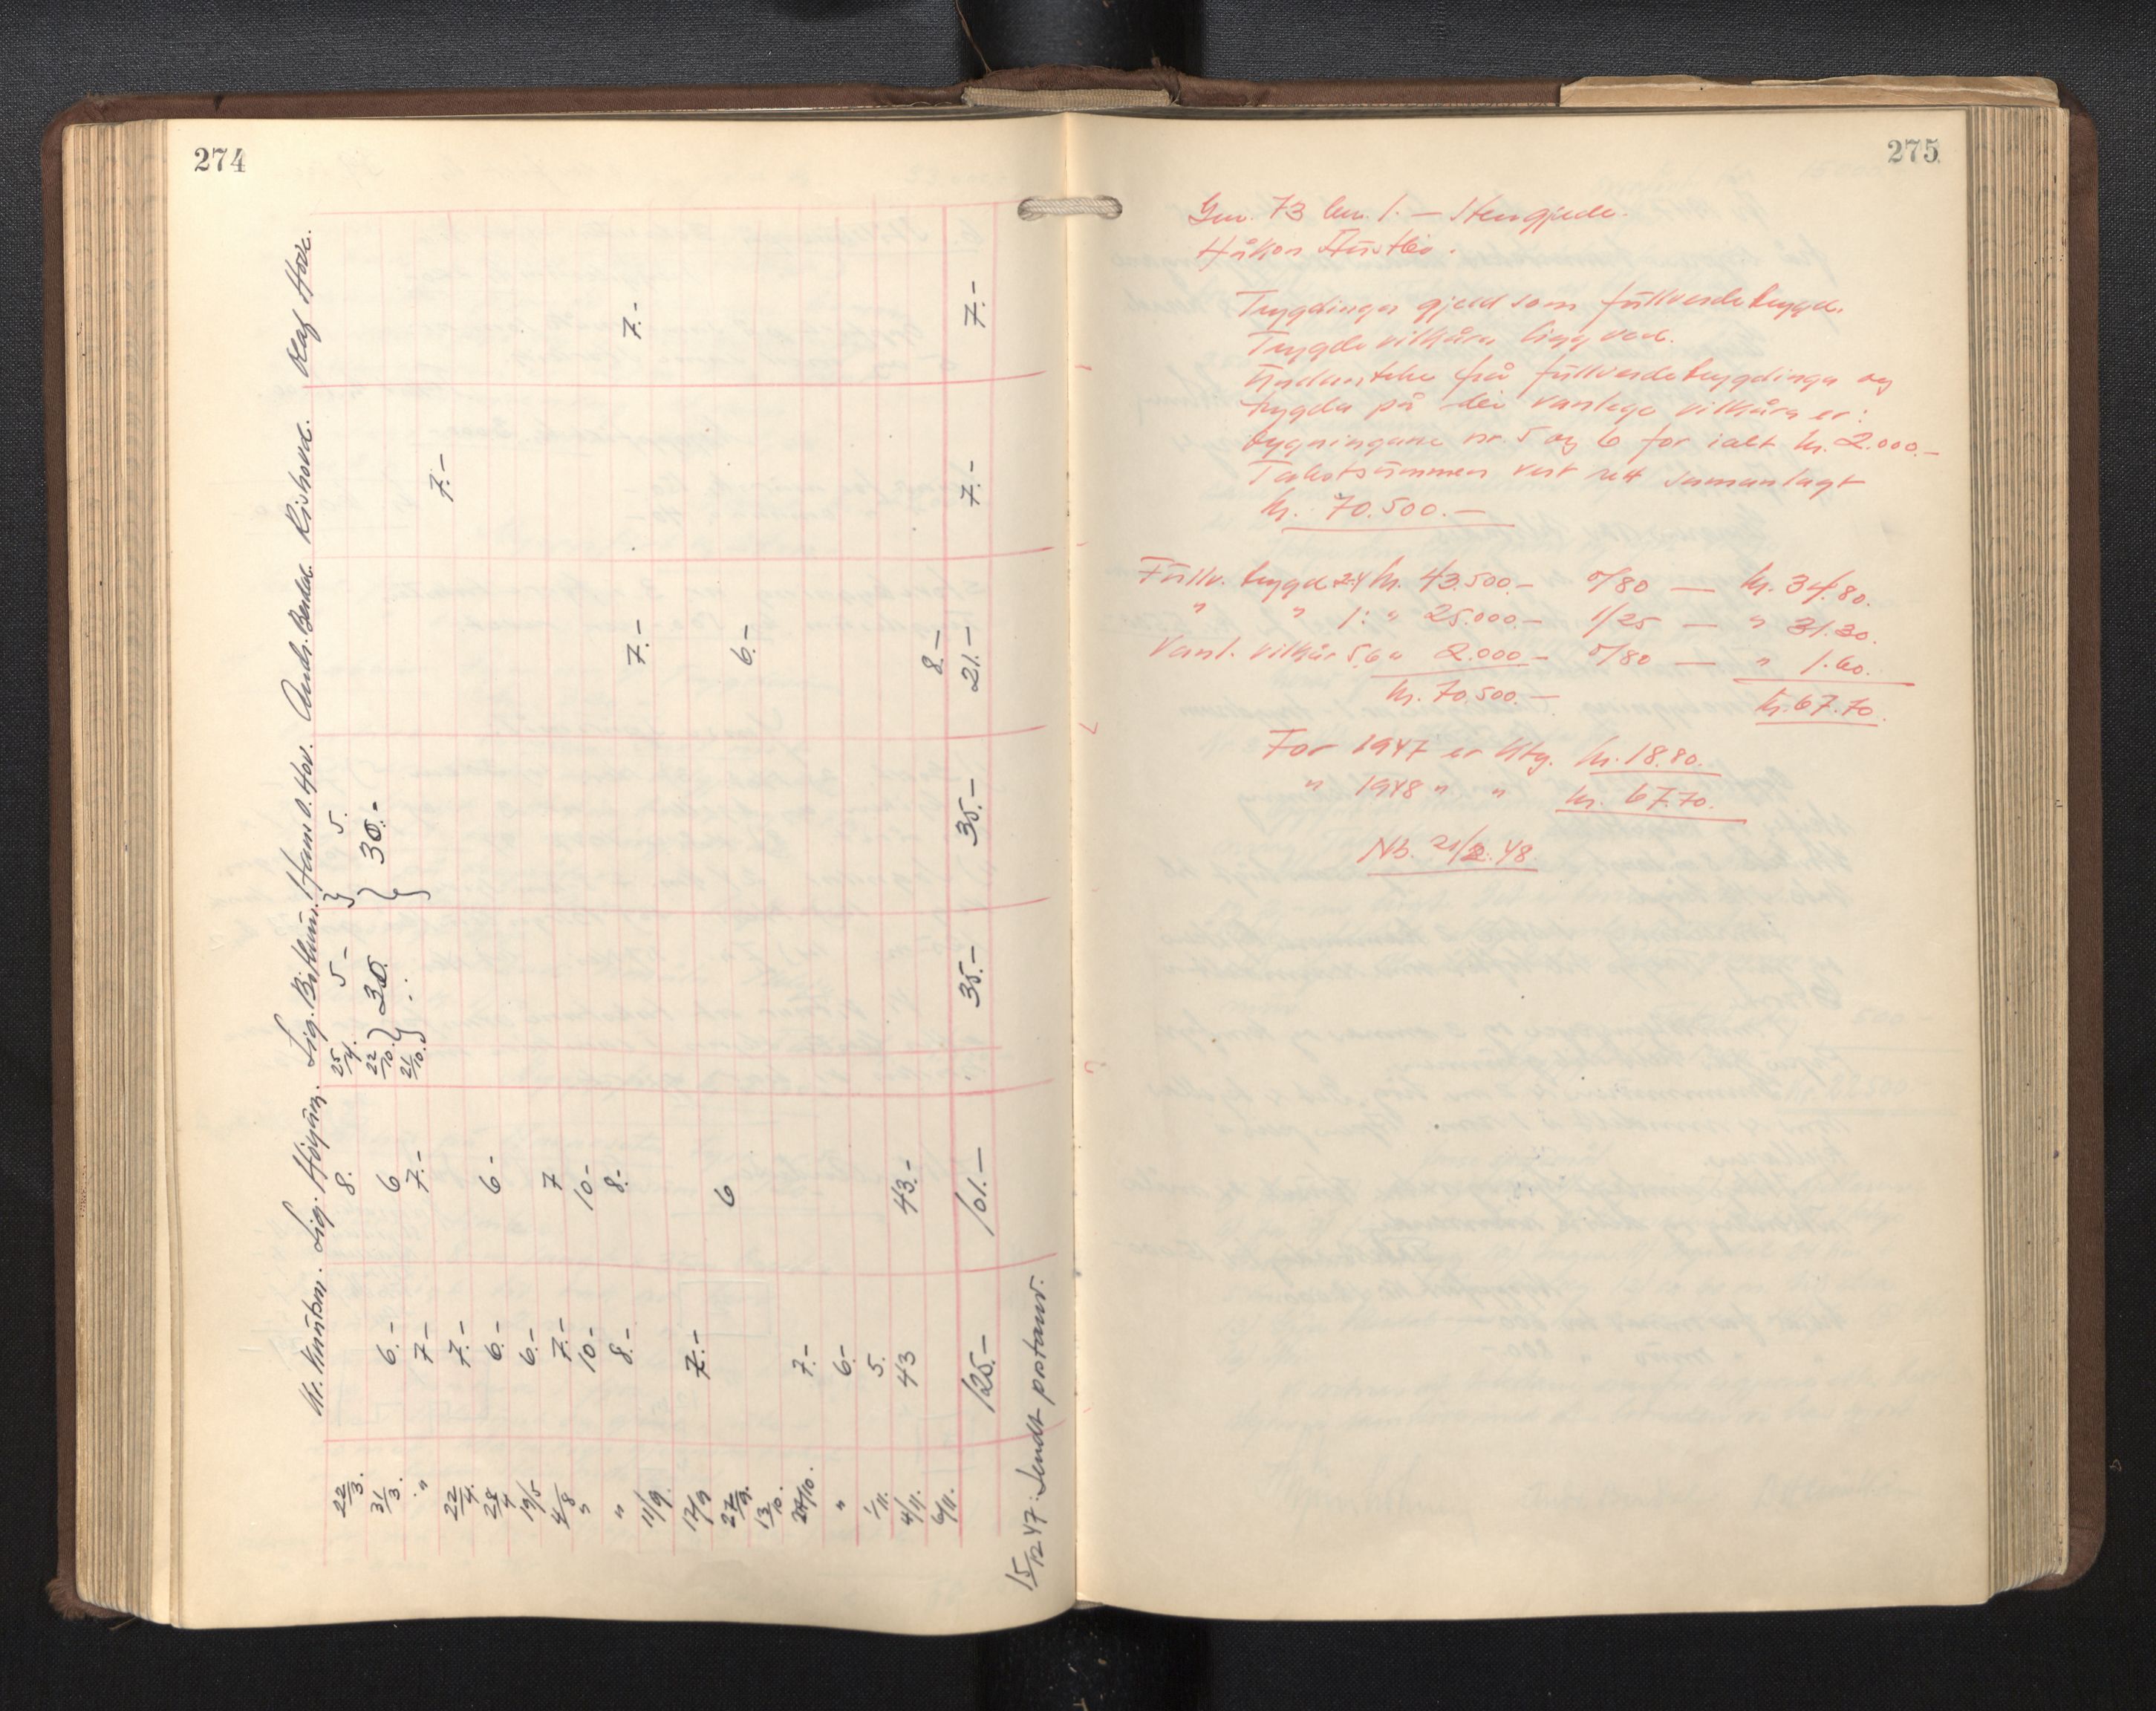 274
Kr. Knutsen. Sig. Höyum. Sig. Bithun. Hans O. Hov. Ands. Berdal. Rishovd. Olaf Hove.
22/3. 8. 25/4. } 5.- } 5.
31/3. 6.- 6 22/10. } 30. } 30.-
" 7.- 7.- 21/10.
22/4. 7.- 7.-
28/4 6.- 6.-
19/5 6.-
4/8 7.- 7
" 10.- 10.-
" 8.- 8.-
11/9. 7.- 7.-
12/9 7.-
27/9. 6
13/10. 6.-
24/10. 7.-
" 6.-
1/11. 5.
4/11. 43 43.-
6/11. 8.-
125.- 101.- 35.- 35.- 21.- 7.- 7.-
15/12 47: Sendt postanv.
275
Gnr. 73 bnr. 1. — Stengjerde.
Håkon Austbö.
Trygdinga gjeld som fullverdetrygd.
Trygdevilkåra ligg ved.
Undanteke frå fullverdetrygdinga og
trygda på dei vanlege vilkåra er:
bygningane nr. 5 og 6 for ialt kr. 2.000.-
Takstsummen vert rett samanlagt
kr. 70.500.—
Fullv. trygd 2-4 kr. 43.500.- 0/80 — kr. 34.80.
" " 1: " 25.000.- 1/25 — " 31.30.
Vanl. vilkår 5,6 " 2.000.- 0/80 — " 1.60.
kr. 70.500.— kr. 67.70.
For 1947 er ktg. kr. 18.80.
" 1948 " " kr. 67.70.
Nb. 21/2.48.